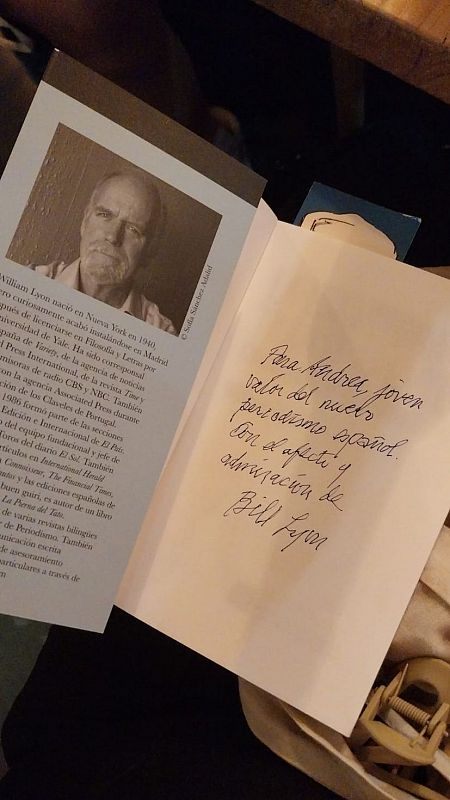 © Sofía Sánchez Adalid
William Lyon nació en Nueva York en 1940,
ero curiosamente acabó instalándose en Madrid
spués de licenciarse en Filosofía y Letras por
niversidad de Yale. Ha sido corresponsal
spaña de Variety, de la agencia de noticias
d Press International, de la revista Time y
misoras de radio CBS y NBC. También
on la agencia Associated Press durante
ción de los Claveles de Portugal.
1986 formó parte de las secciones
Edición e Internacional de El País,
o del equipo fundacional y jefe de
foros del diario El Sol. También
rtículos en International Herald
Connoisseur, The Financial Times,
y las ediciones españolas de
buen guiri, es autor de un libro
La Pierna del Tato,
de varias revistas bilingües
de Periodismo. También
unicación escrita
de asesoramiento
particulares a través de
Para Andrea, jóven
valor del nuevo
periodismo español.
Con el afecto y
admiración de
Bill Lyon